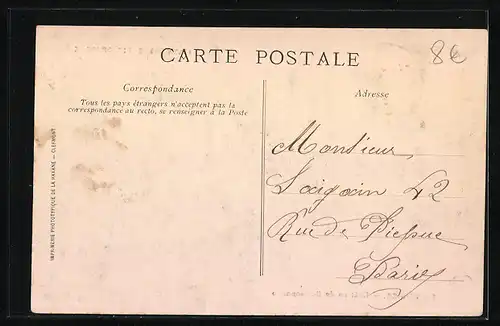 CARTE POSTALE
8€
Correspondance
Tous les pays étrangers n'acceptent pas la
correspondance au recto, se renseigner à la Poste
Adresse
IMPRIMERIE PHOTOTYPIQUE DE LA HAYANE — CLERMONT
Monsieur
42
Rue de Picpus
Paris